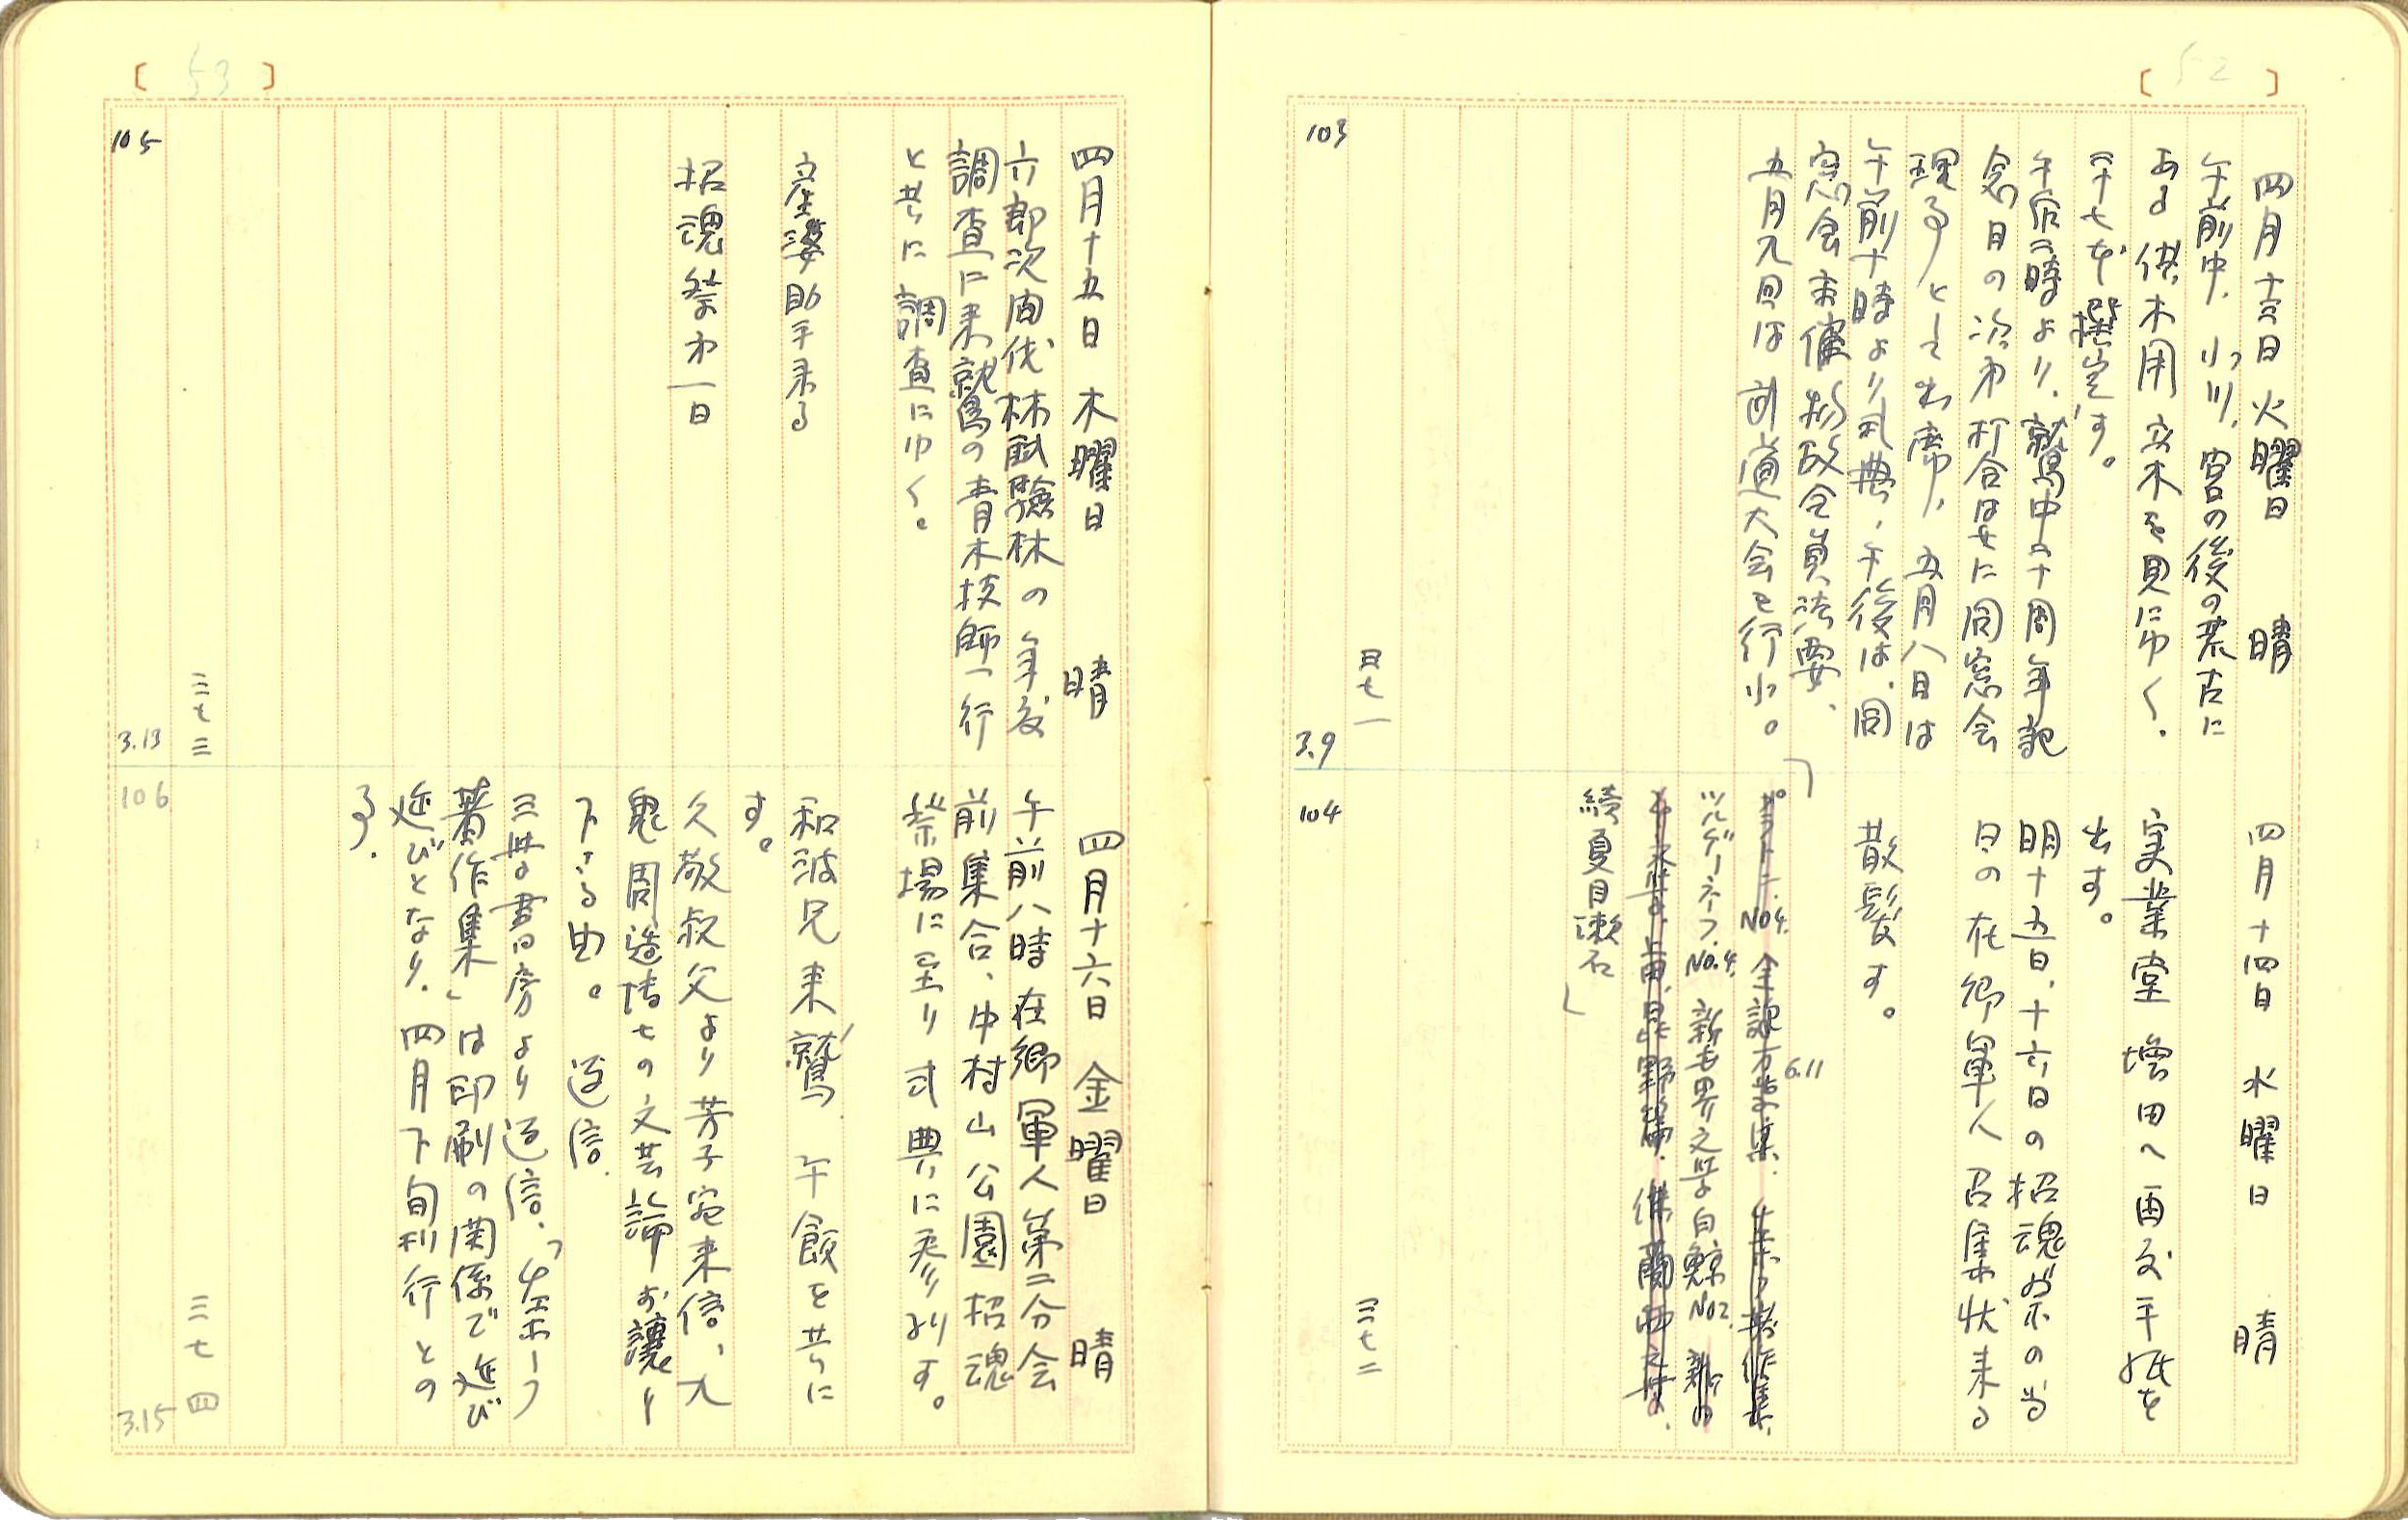 52
四月十三日 火曜日 晴
午前中、小川、宮の後の荒古に
ある供木用立木を見にゆく.
三十七本撰定す。
午后二時より、鷲中四十周年記
念日の次第打合はせに同窓会
理事として出席、五月八日は
午前十時より式典、午後は、同
窓会主催物故会員法要、
五月九日は剣道大会を行ふ。
三七一
103
3.9
四月十四日 水曜日 晴
実業堂増田へ再度手紙を
出す。
明十五日、十六日の招魂祭の当
日の在郷軍人召集状来る
散髪す。
6.11
「プラトーン No4. 全訳万葉集. 生ホーフ著作集.
ツルゲーネフ. No.4. 新世界文学白鯨 No2.
続夏目漱石」
三七二
104
53
四月十五日 木曜日 晴
六郎次間伐林試験林の年度
調査に来鷲の青木技師一行
と共に調査にゆく。
安婆助手来る
招魂祭第一日
三七三
105
3.13
四月十六日 金曜日 晴
午前八時在郷軍人第二分会
前集合、中村山公園招魂
祭場に至り式典に参列す。
和波兄来鷲 午餐を共に
す。
久敬叔父より芳子宛来信、九
鬼周造博士の文芸論お譲り
下さる由。返信.
三世書房より返信、「ホーフ
著作集」は印刷の関係で延び
延びとなり. 四月下旬刊行との
事.
三七四
106
3.15